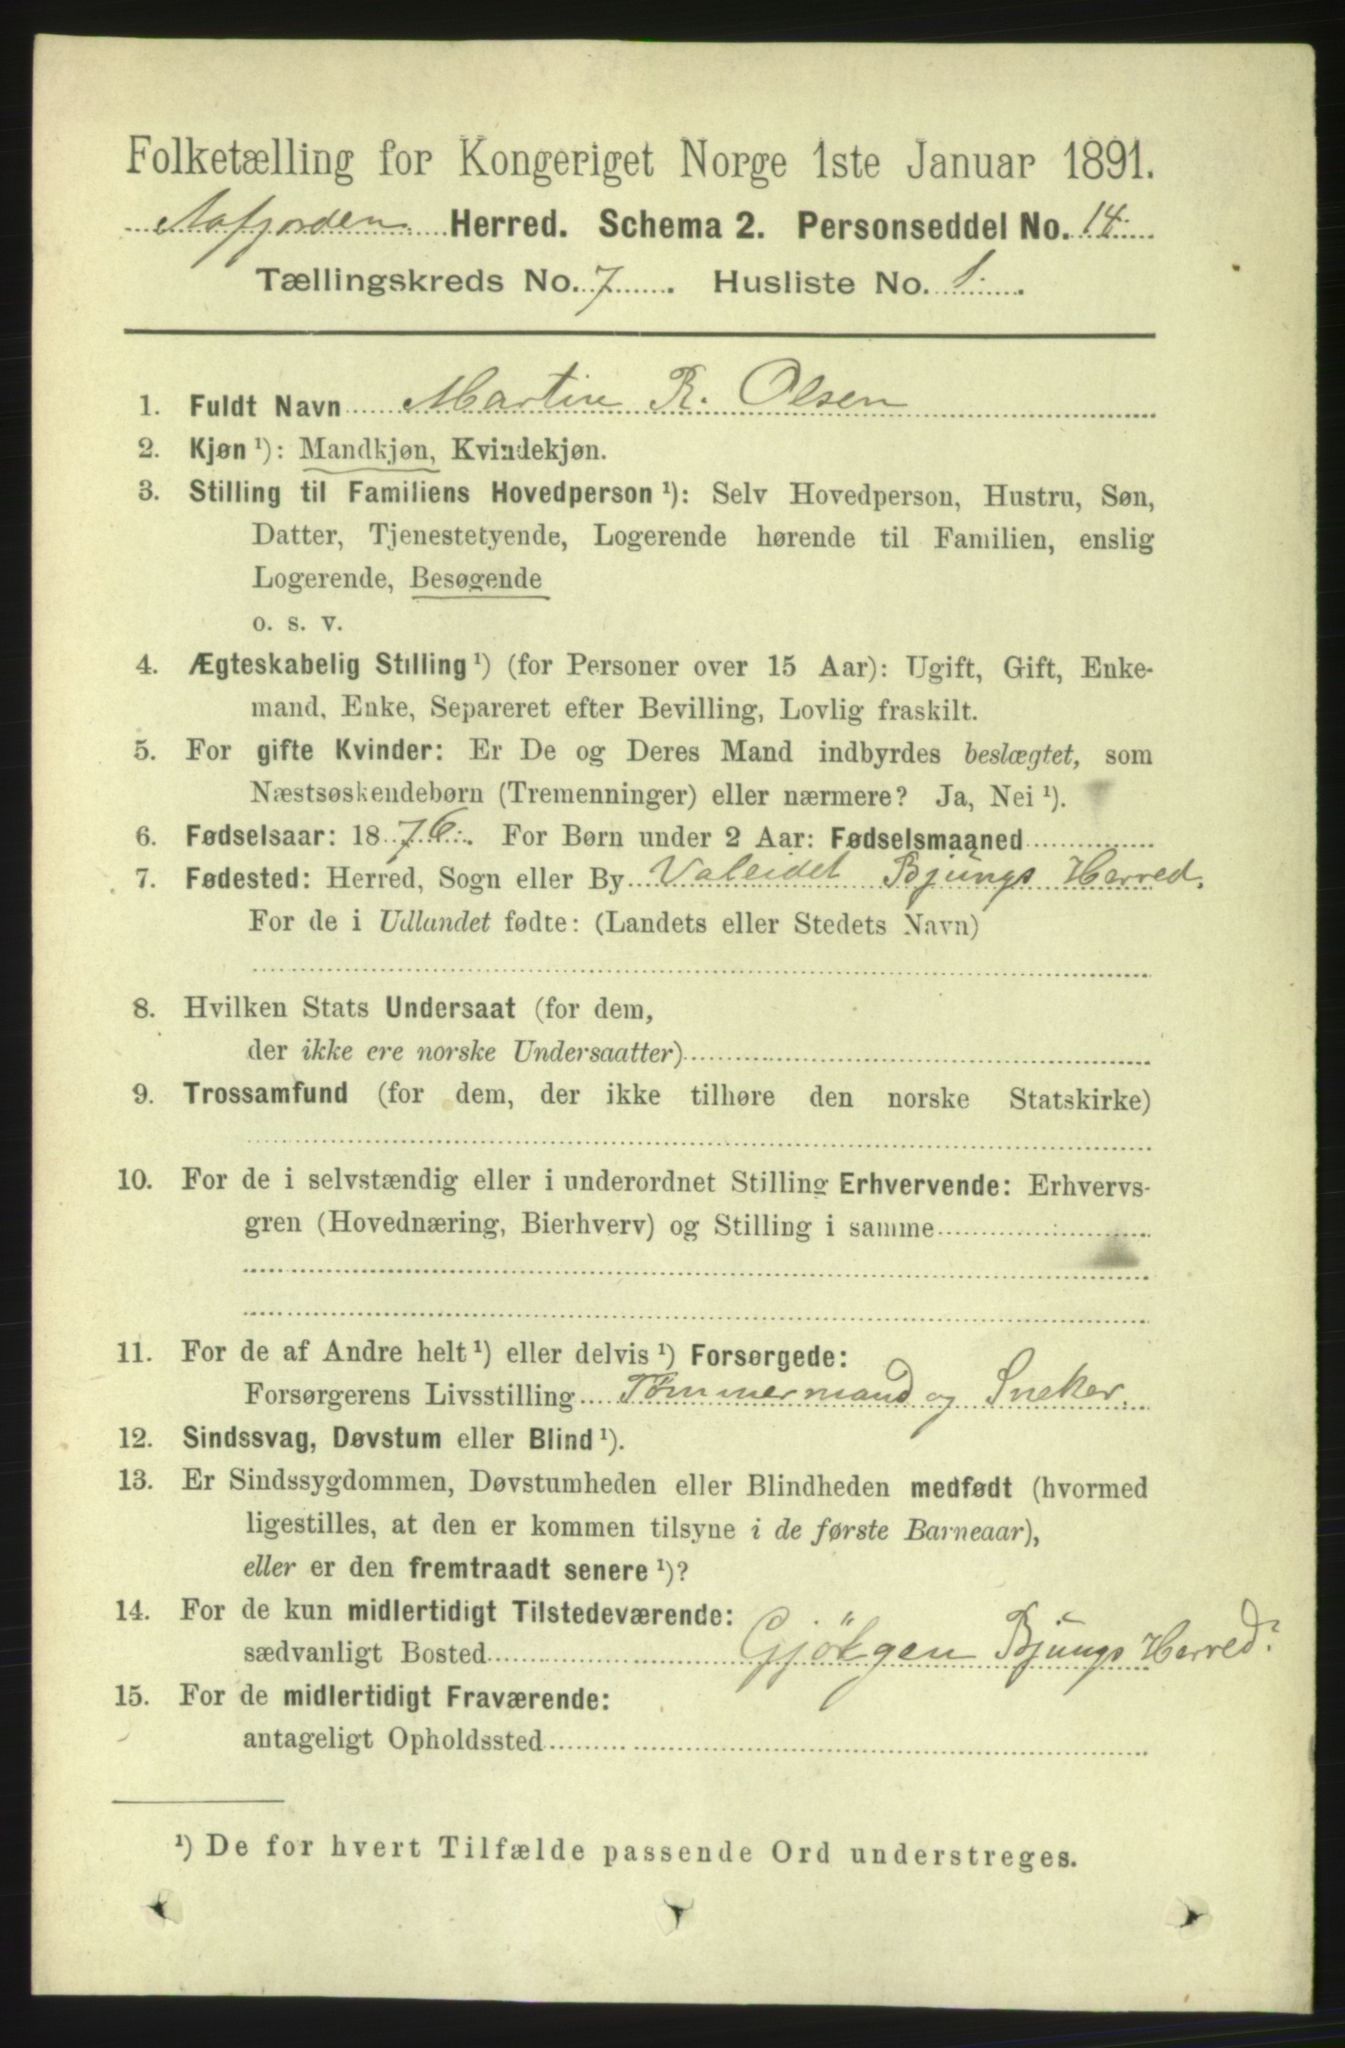 Folketælling for Kongeriget Norge 1ste Januar 1891.
Aafjorden Herred. Schema 2. Personseddel No. 14.
Tællingskreds No. 7. Husliste No. 1.
1. Fuldt Navn Martin R. Olsen
2. Kjøn ¹): Mandkjøn, Kvindekjøn.
3. Stilling til Familiens Hovedperson ¹): Selv Hovedperson, Hustru, Søn,
Datter, Tjenestetyende, Logerende hørende til Familien, enslig
Logerende, Besøgende
o. s. v.
4. Ægteskabelig Stilling ¹) (for Personer over 15 Aar): Ugift, Gift, Enke-
mand, Enke, Separeret efter Bevilling, Lovlig fraskilt.
5. For gifte Kvinder: Er De og Deres Mand indbyrdes beslægtet, som
Næstsøskendebørn (Tremenninger) eller nærmere? Ja, Nei ¹).
6. Fødselsaar: 1876. For Børn under 2 Aar: Fødselsmaaned
7. Fødested: Herred, Sogn eller By Valeidet Bjungs Herred.
For de i Udlandet fødte: (Landets eller Stedets Navn)
8. Hvilken Stats Undersaat (for dem,
der ikke ere norske Undersaatter)
9. Trossamfund (for dem, der ikke tilhøre den norske Statskirke)
10. For de i selvstændig eller i underordnet Stilling Erhvervende: Erhvervs-
gren (Hovednæring, Bierhverv) og Stilling i samme
11. For de af Andre helt ¹) eller delvis ¹) Forsørgede:
Forsørgerens Livsstilling Tømmermand og Sneker.
12. Sindssvag, Døvstum eller Blind ¹).
13. Er Sindssygdommen, Døvstumheden eller Blindheden medfødt (hvormed
ligestilles, at den er kommen tilsyne i de første Barneaar),
eller er den fremtraadt senere ¹)?
14. For de kun midlertidigt Tilstedeværende:
sædvanligt Bosted Gjölgen Bjungs Herred.
15. For de midlertidigt Fraværende:
antageligt Opholdssted
¹) De for hvert Tilfælde passende Ord understreges.